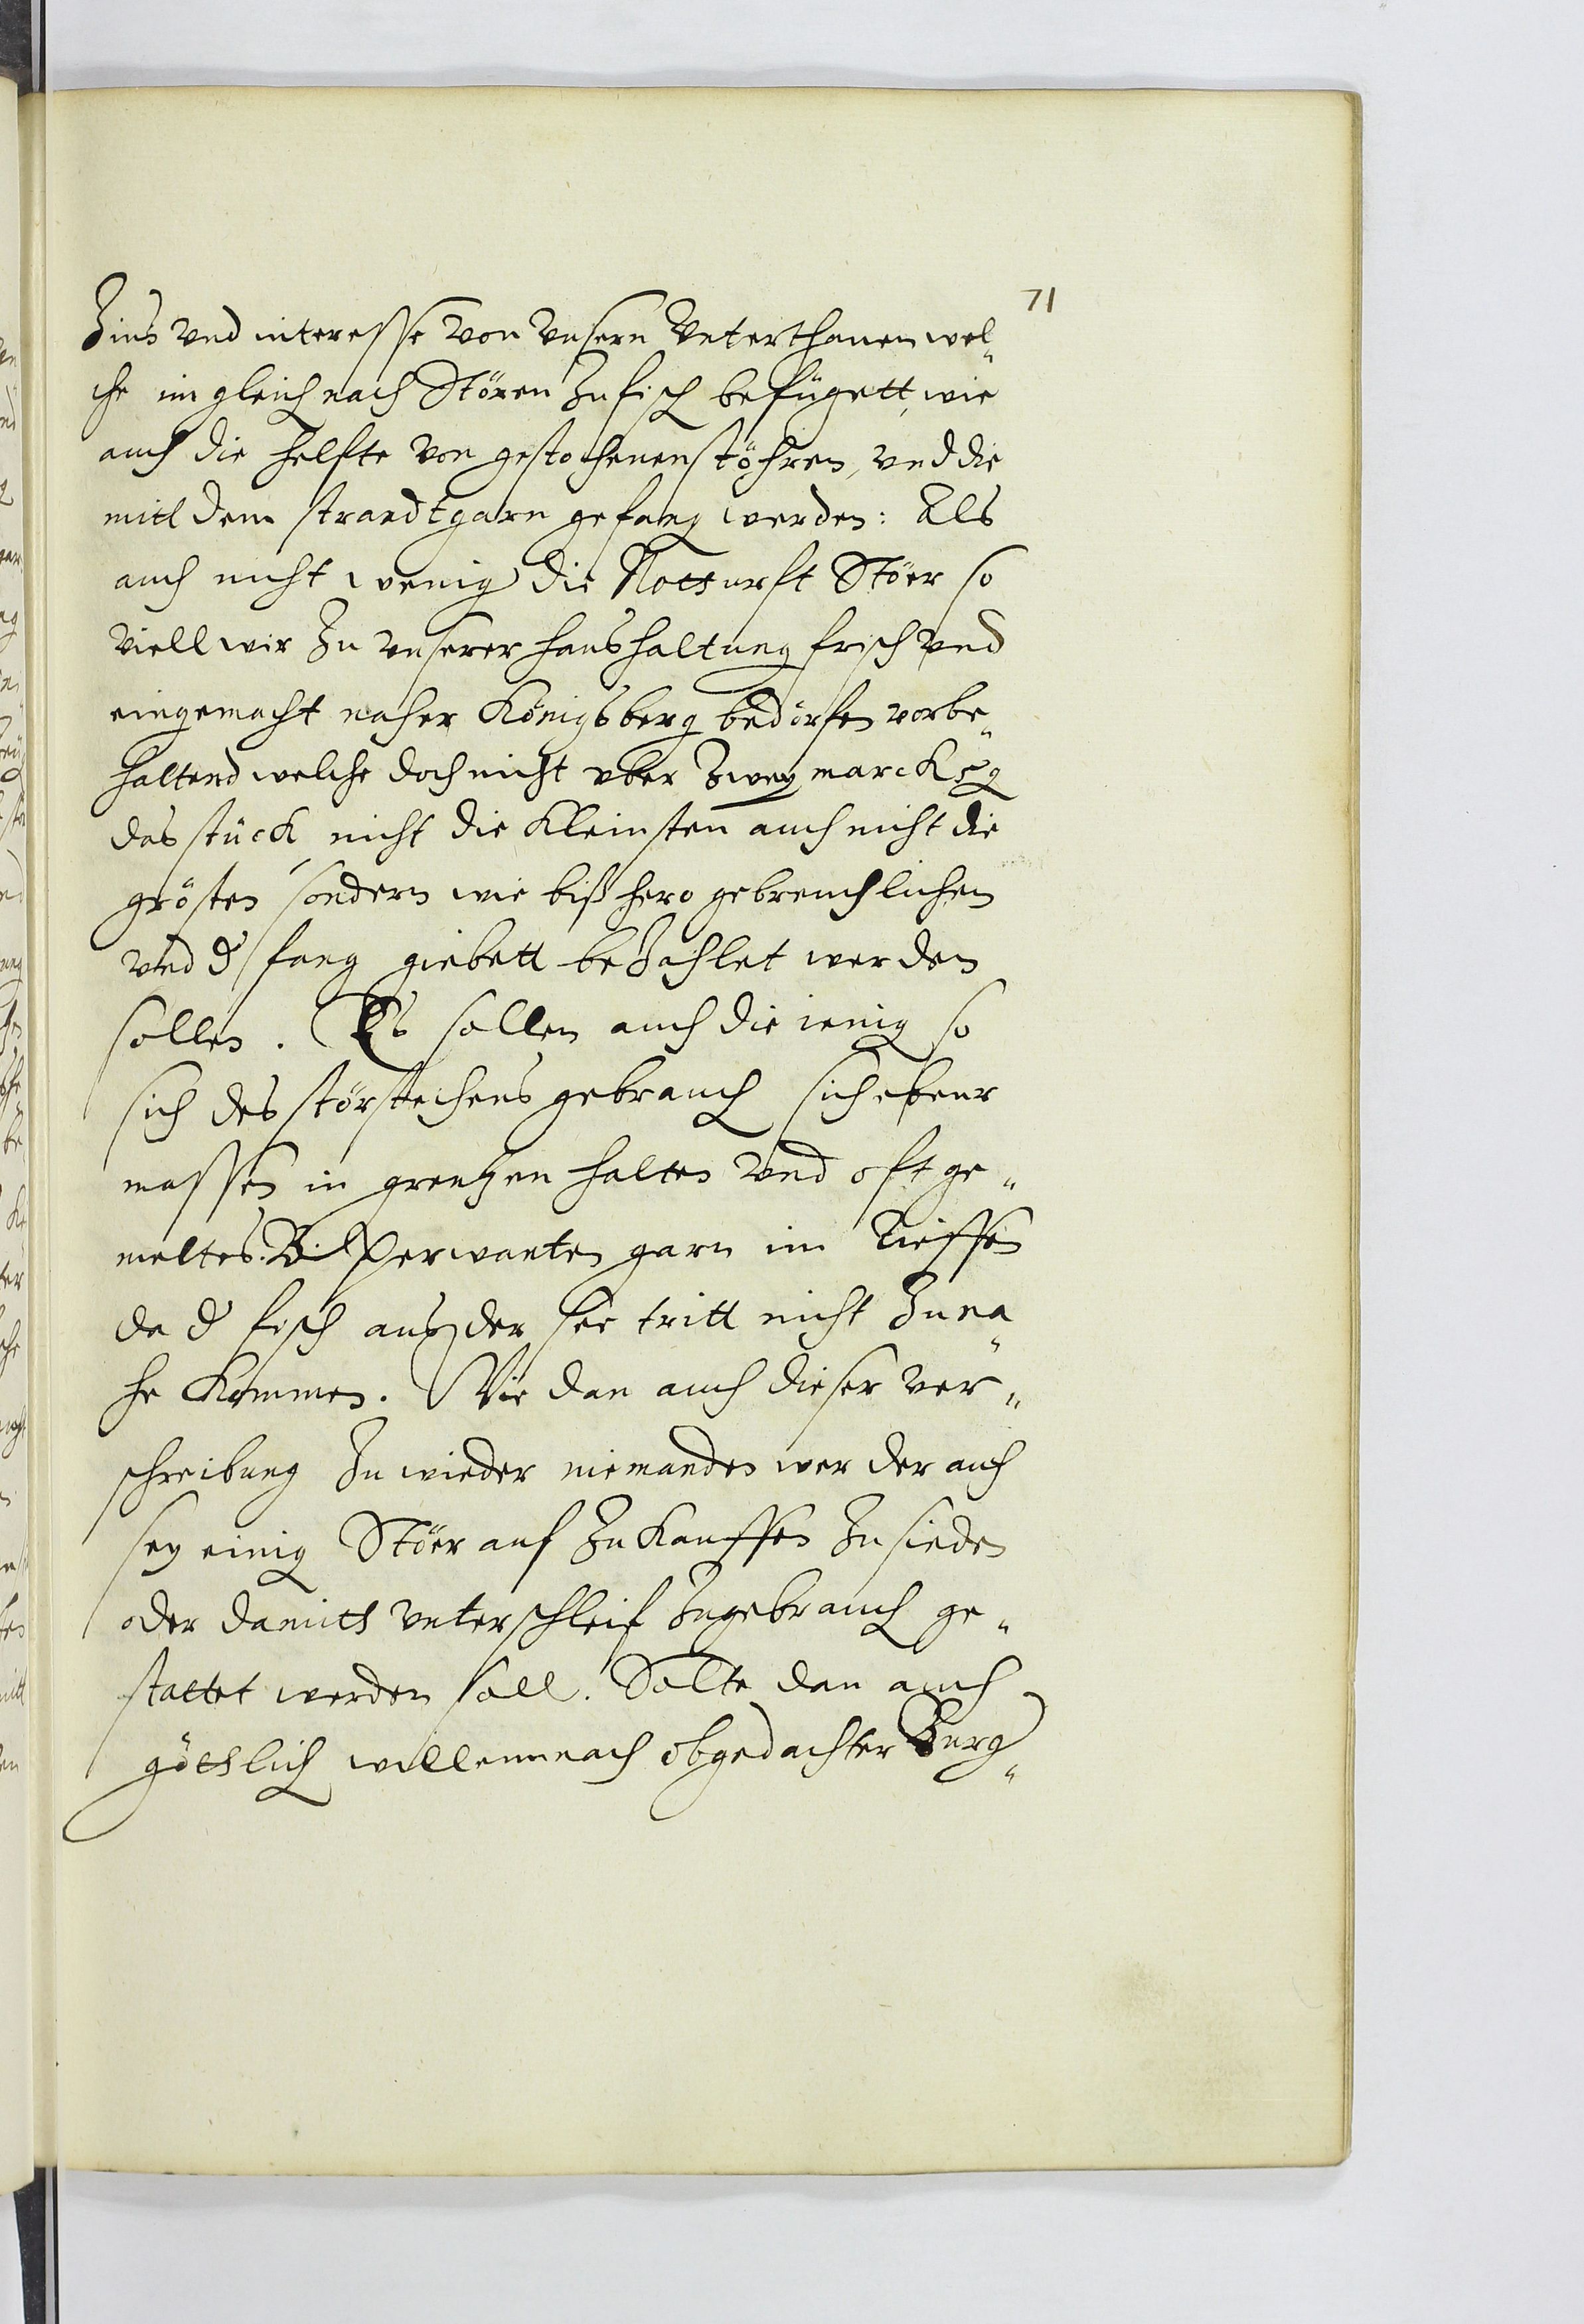 71
Zins vnd interesse von vnsern Vnterthanen wel„
che im gleich nach Stören Zu fisch befügett, wie
auch die helfte von gestochenen stöhren, vnd die
mitt dem strandtgarn gefang werden: Als
auch nicht wenig die Notturft Stöer so
viell wir Zu vnserer haushaltung frisch vnd
eingemacht naher Königsberg bedörfen vorbe„
haltend welche doch nicht vber Zwey marck
das stück nicht die Kleinsten auch nicht die
grösten sondern wie bißhero gebreuchlichen
vnd d fang giebett beZahlet werden
sollen. Es sollen auch die ienig so
sich des störstechens gebrauch sich ebener
massen in grentzen halten vnd oft ge„
meltes verwanten garn im Tieffen
da d fisch aus der see tritt nicht Zu na„
he Kommen. Wie dan auch dieser ver„
schreibung Zu wieder niemanden wer der auch
sey einig Stöer auf Zu Kauffen Zu sieden
oder damitt vnterschleif Zu gebrauch ge„
stattet werden soll. Solte dan auch
göttlich willen nach obgedachter Burg„